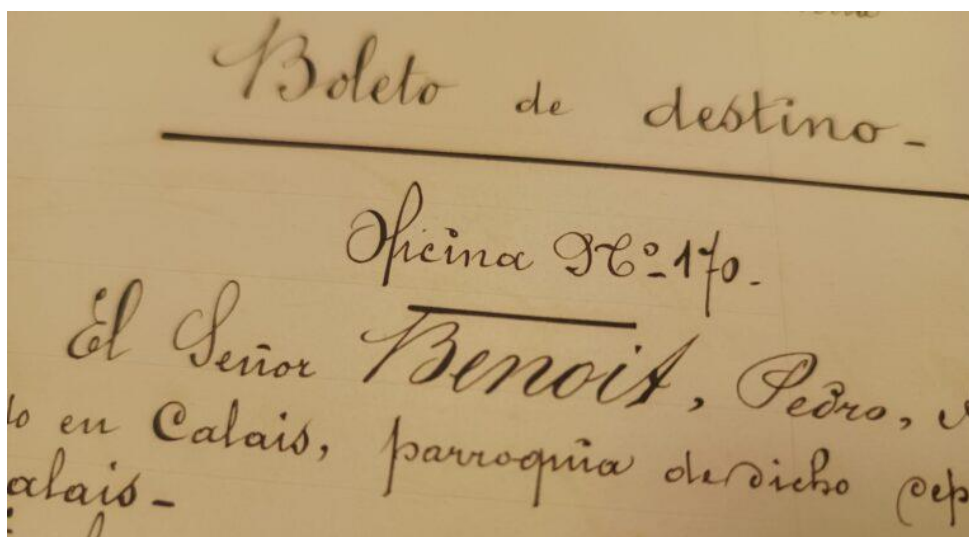 Boleto de destino-
Oficina Nº 170.-
El Señor Benoit, Pedro,
en Calais, parroquia de dicho
alais-